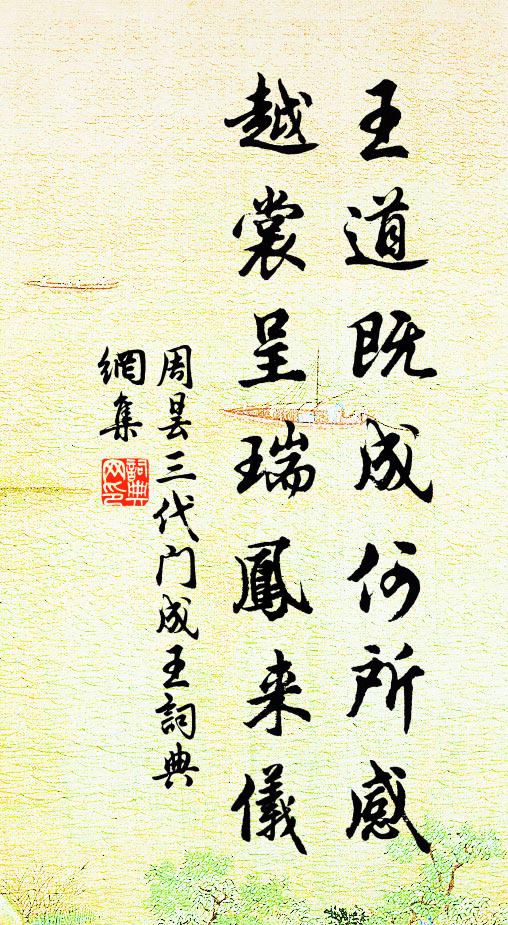 王道既成何所感
越裳呈瑞鳳来儀
周昙三代门成王詞典
網集
詞典网印